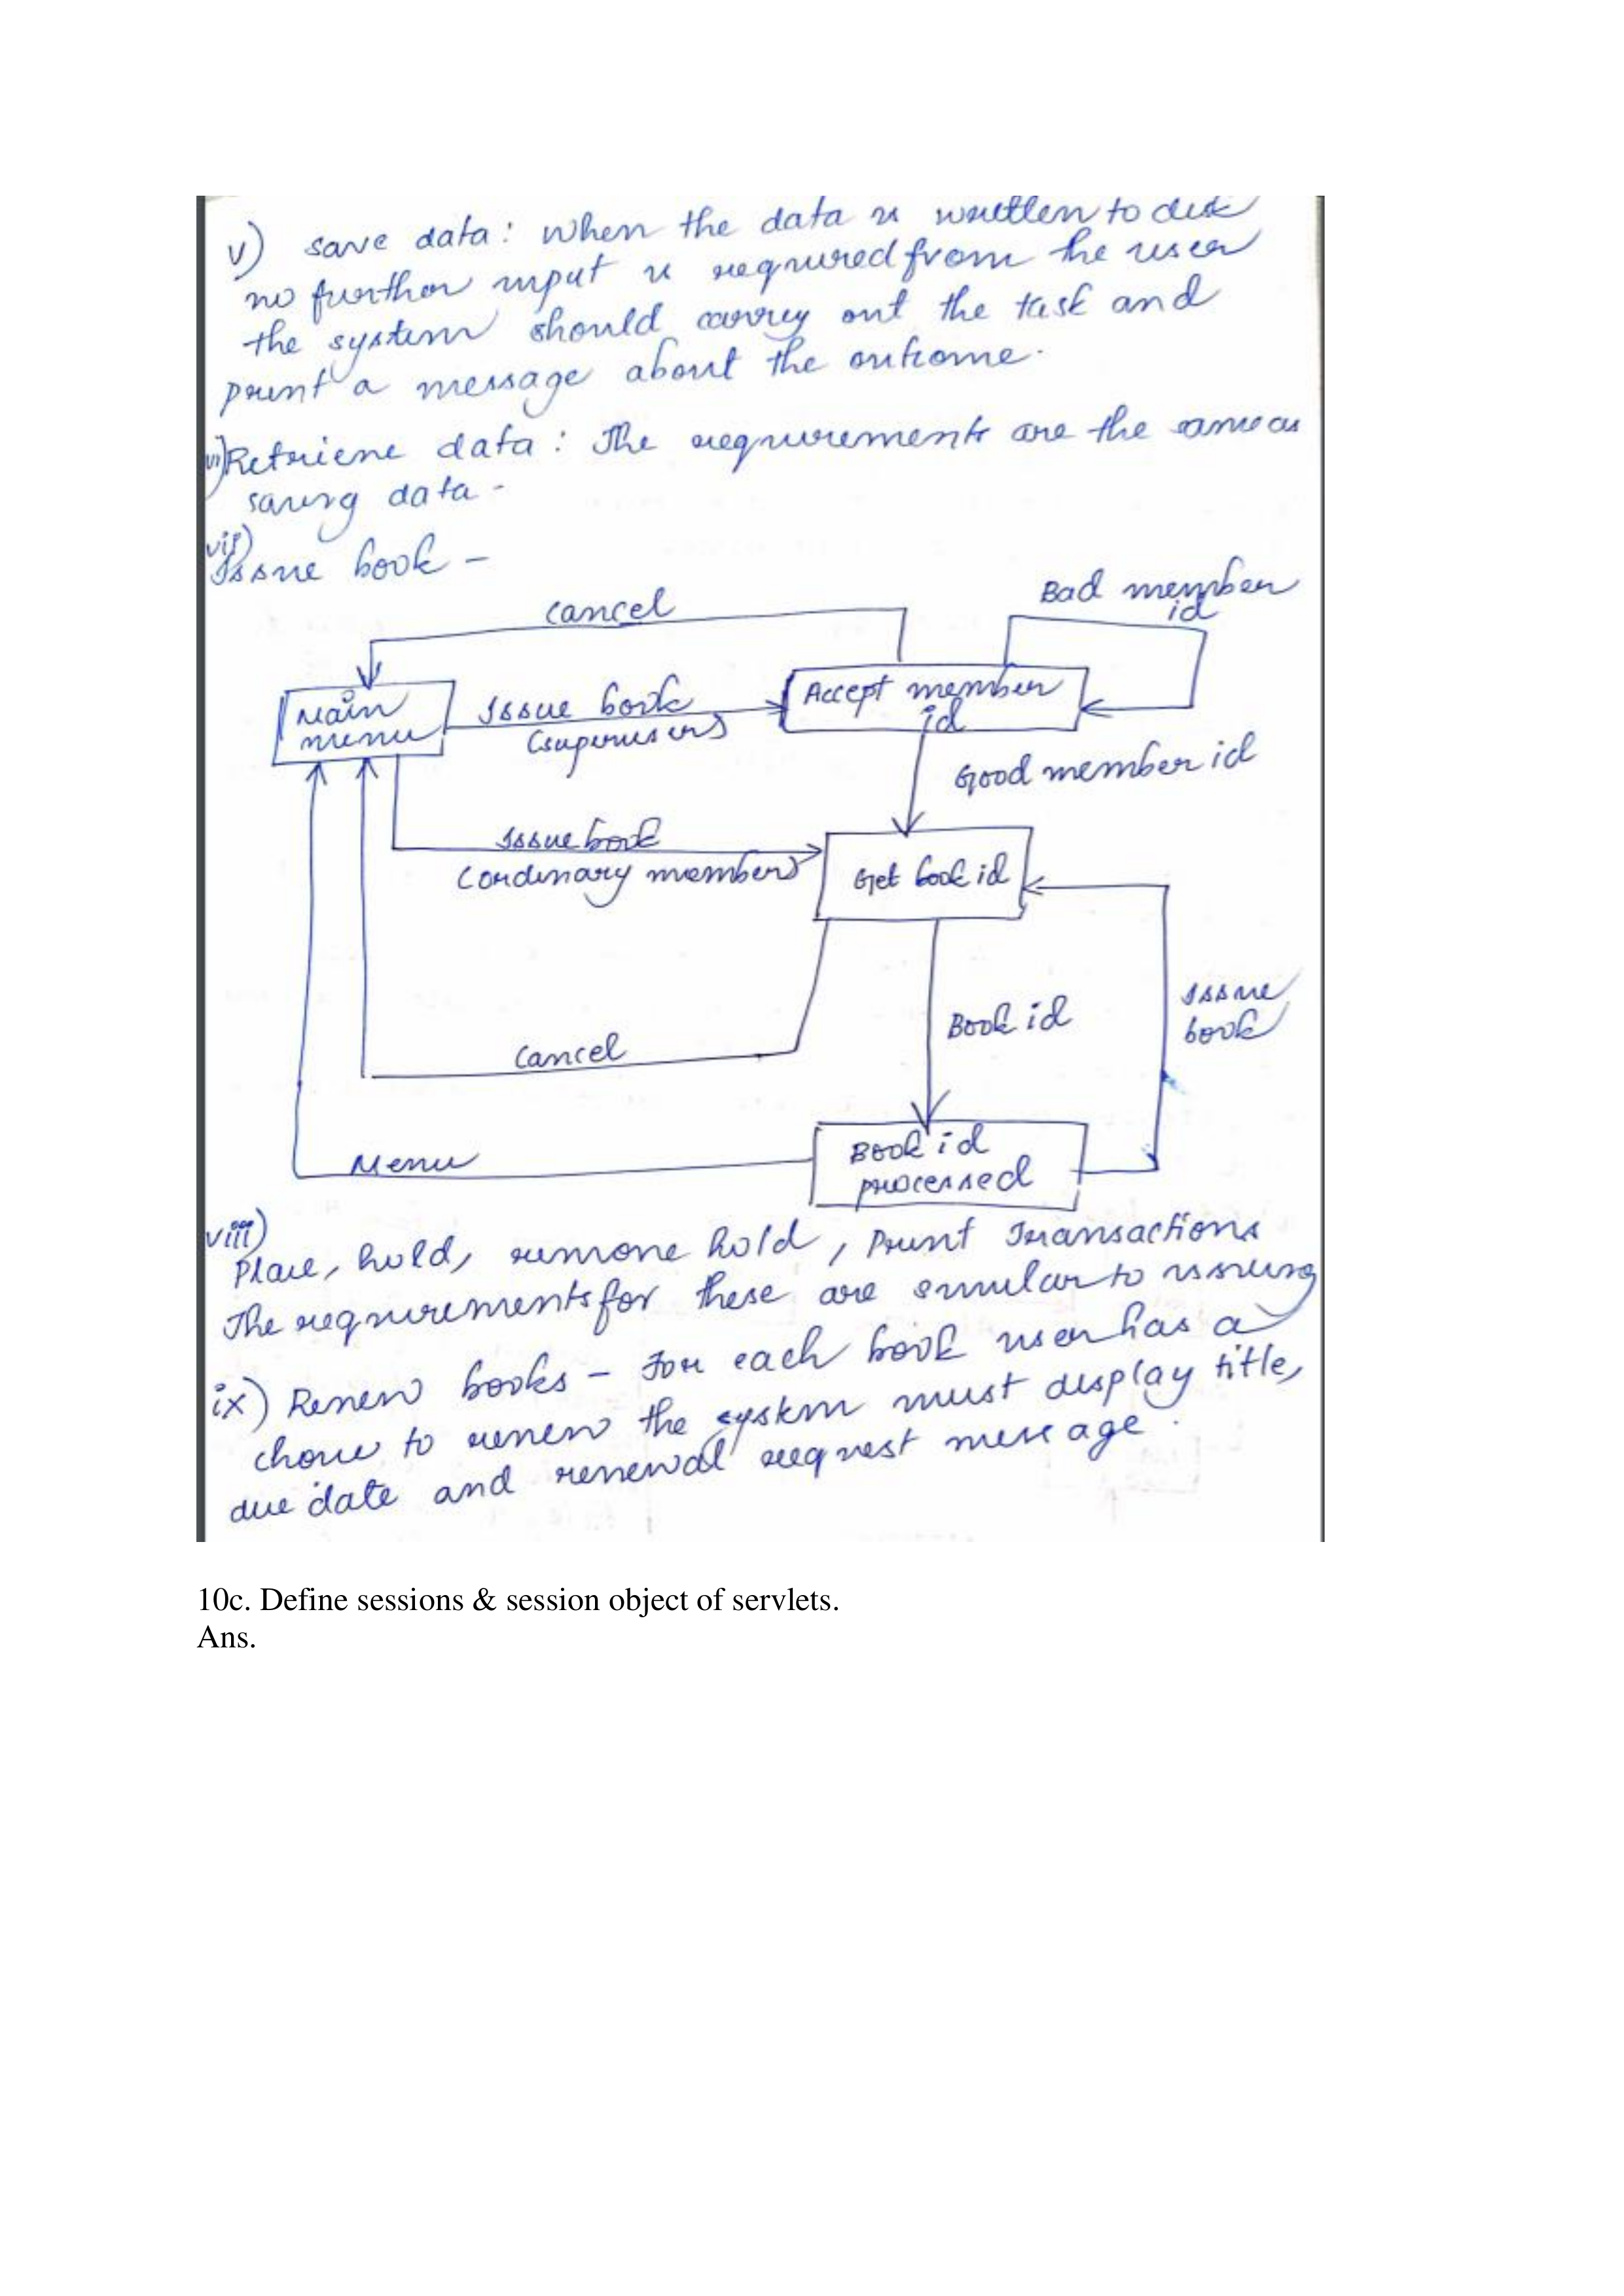 v) save data: when the data is written to disk
no further input is required from the user
the system should carry out the task and
print a message about the outcome.
vi) Retrieve data: The requirements are the same as
saving data -
vii)
Issue book -
Bad member
id
cancel
Main
menu
Issue book
(superusers)
Accept member
id
Good member id
Issue book
(ordinary members)
Get book id
Issue
book
Book id
Cancel
Book id
processed
Menu
viii)
Place, hold, remove hold, Print Transactions
The requirements for these are similar to issuing
ix) Renew books - For each book user has a
choice to renew the system must display title,
due date and renewal request message.
10c. Define sessions & session object of servlets.
Ans.